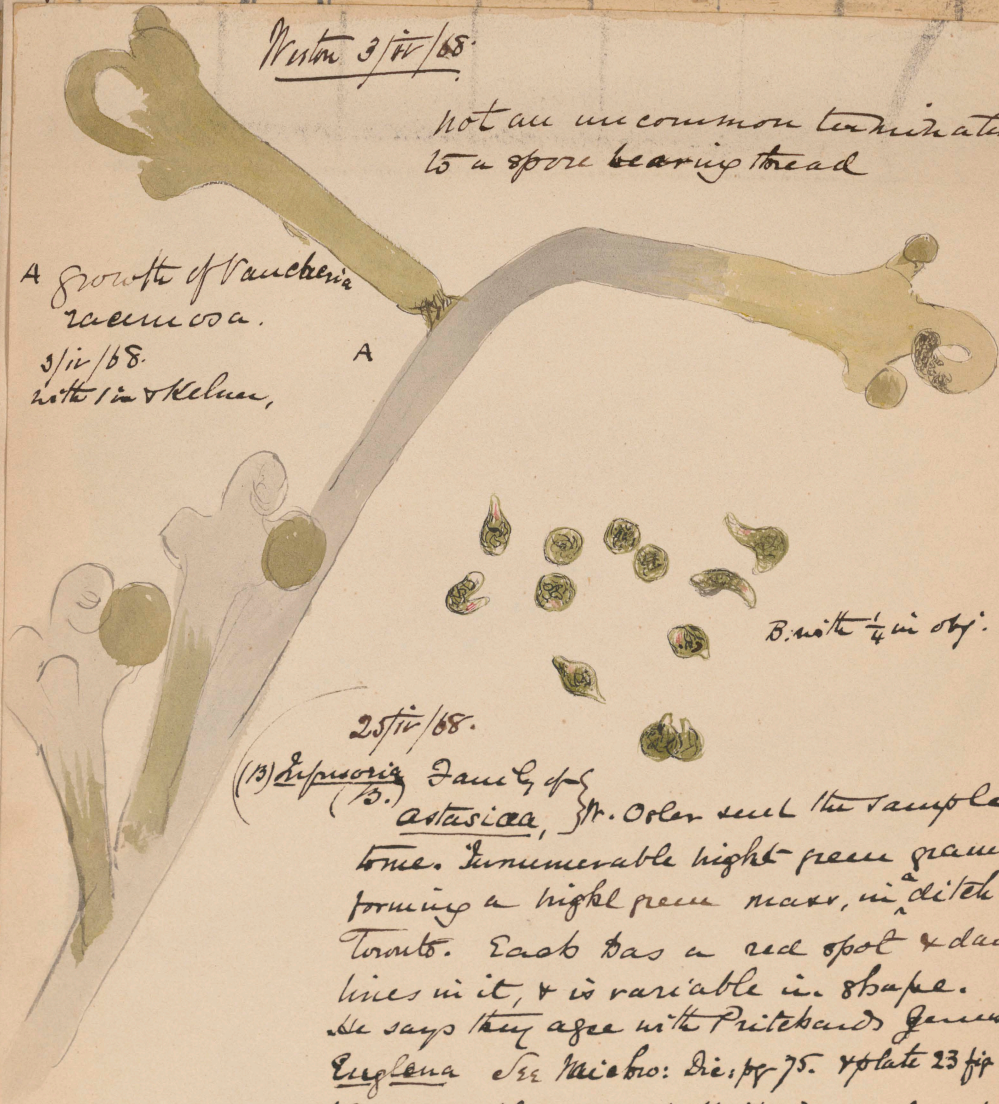 Weston 3/iv/68.
not an uncommon terminat
to a spore bearing thread
A growth of Vaucheria
racemosa.
3/iv/68.
with 1 in & Kelner,
A
B. with 1/4 in obj.
25/iv/68.
(B) Infusoria Family of
(B.) astasiæa, } W. Osler sent the sample
to me. Innumerable bright green gran
forming a bright green mass, in a ditch
Toronto. Each has a red spot & da
lines in it, & is variable in shape.
He says they agee with Pritchards Genu
Euglena See Micro: Dic: pg 75. & plate 23 fig